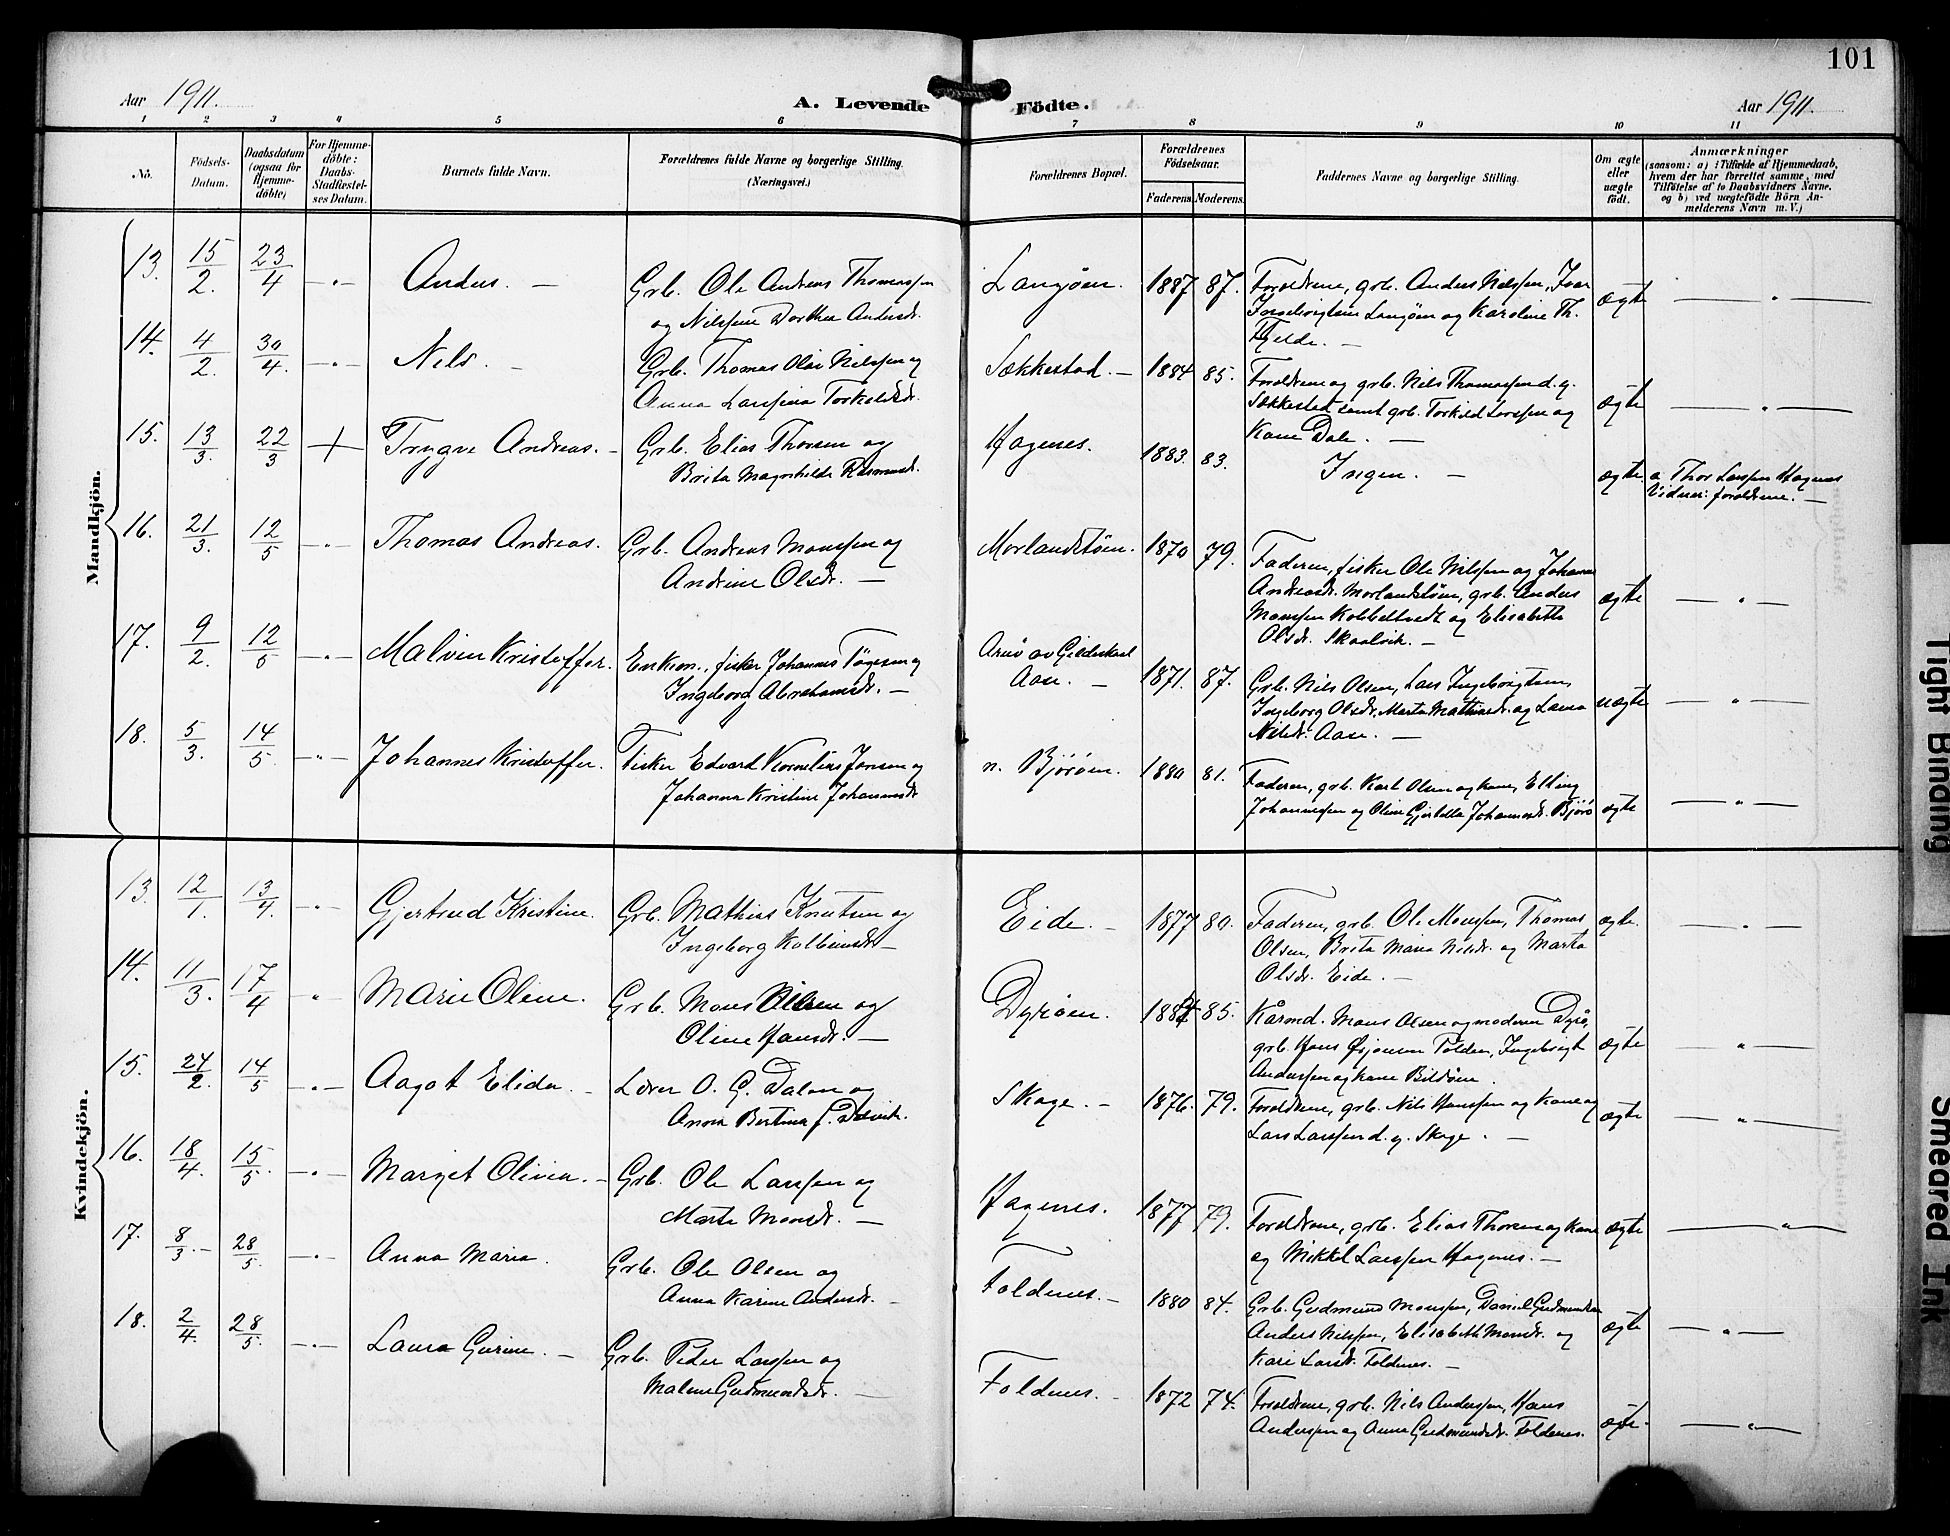 101
Aar 1911.
A. Levende Födte.
Aar 1911.
1 2 3 4 5 6 7 8 9 10 11
No.
Födsels-Datum.
Daabsdatum (ogsaa for Hjemme-döbte)
For Hjemme-döbte: Daabs-Stadfæstel-ses Datum.
Barnets fulde Navn.
Forældrenes fulde Navne og borgerlige Stilling. (Næringsvei.)
Forældrenes Bopæl.
Forældrenes Födselsaar.
Faderens Moderens
Faddernes Navne og borgerlige Stilling.
Om ægte eller uægte födt.
Anmærkninger
(saasom: a) i Tilfælde af Hjemmedaab,
hvem der har forrettet samme, med
Tilföielse af to Daabsvidners Navne,
og b) ved uægtefödte Börn An-
melderens Navn m. V.)
Mandkjön.
13. 15/2. 23/4 -"- Anders. — Grb. Ole Andreas Thomassen
og Nilssine Dorthea Andersdr.
Langöen. 1887 87. Forældrene, grb. Anders Nilssen, Ivar
Ingebrigtsen Langöen og Karoline Th.
Fjelde. —
ægte — " —
14. 4/2. 30/4. -"- Nils. — Grb. Thomas Olai Nilssen og
Anna Larsine Torkelsdr.
Sækkestad. — 1884 85. Forældrene og grb. Nils Thomassen d.y.
Sækkestad samt grb. Torkild Larssen og
Kone Dale. —
ægte — " —
15. 13/3. 22/3 + Trygve Andreas. — Grb. Elias Thorsen og
Brita Magnhilde Rasmusd.
Hagenes. 1883. 83. Ingen. — ægte. a Thor Larssen Hagenes
Vidner: forældrene. —
16. 21/3. 12/5 -"- Thomas Andreas. Grb. Andreas Monssen og
Andrine Olsdr. —
Morlandstöen. 1870 79. Faderen, fisker Ole Nilssen og Johanne
Andreasdr. Morlandstöen, grb. Anders
Monssen Kobbeltvedt og Elisabeth
Olsdr. Skaalvik. —
ægte — " —
17. 9/2. 12/5 -"- Malvin Kristoffer. Enkem., fisker Johannes Tögersen og
Ingeborg Abrahamsdr. —
Arnö av Gildeskaal
Aase. —
1871. 87. Grb. Nils Olsen, Lars Ingebrigtsen,
Ingeborg Olsdr, Marta Mathiasdr. og Laura
Nilsdr. Aase. —
uægte — " —
18. 5/3. 14/5. -"- Johannes Kristoffer. Fisker Edvard Kornelius Jonsen og
Johanna Kristine Johannesdr
n. Björöen. 1880 81. Faderen, grb. Karl Olsen og kone, Elling
Johannessen og Oline Gjertella Johannesdr. Björö
ægte — " —
Kvindekjön.
13. 12/1. 13/4. -"- Gjertrud Kristine. Grb. Mathias Knutsen og
Ingeborg Kolbeinsdr —
Eide. — 1877 80. Faderen, grb. Ole Monssen, Thomas
Olsen, Brita Maria Nilsdr. og Marta
Olsdr. Eide. —
ægte. — " —
14. 11/3. 17/4 " Marie Oline. Grb. Mons Olsen og
Oline Hansdr. —
Dyröen. 1884 85. Kårmd. Mons Olsen og moderen Dyrö,
grb. Hans Örjansen Tolden, Ingebrigt
Anderssen og kone Bildöen.
ægte — " —
15. 24/2. 14/5 -"- Aagot Elida. — Lærer O. G. Dalen og
Anna Bertina f. Dalvik.
Skage. — 1876. 79. Forældrene, grb. Nils Hanssen og Kone og
Lars Larssen d.y. Skage. —
ægte — " —
16. 18/4. 15/5. -"- Marget Olivia. — Grb. Ole Larssen og
Marta Monsdr. —
Hagenes. 1877 79. Forældrene, grb. Elias Thorsen og kone
og Mikkel Larssen Hagenes. —
ægte — " —
17. 8/3. — 28/5. -"- Anna Maria. Grb. Ole Olsen og
Anna Karine Andersdr. —
Foldnes. — 1880 84. Grb. Gudmund Monssen, Daniel Gudmundsen
Anders Nilssen, Elisabeth Monsdr. og
Kari Larsdr. Foldnes. —
ægte — " —
18. 2/4. 28/5. -"- Laura Gurine. — Grb. Peder Larssen og
Malene Gudmundsdr. —
Foldnes. — 1872 74. Forældrene, grb. Nils Anderssen, Hans
Anderssen og Anna Gudmundsdr. Foldnes.
ægte. — " —
Tight Binding
Smeared Ink